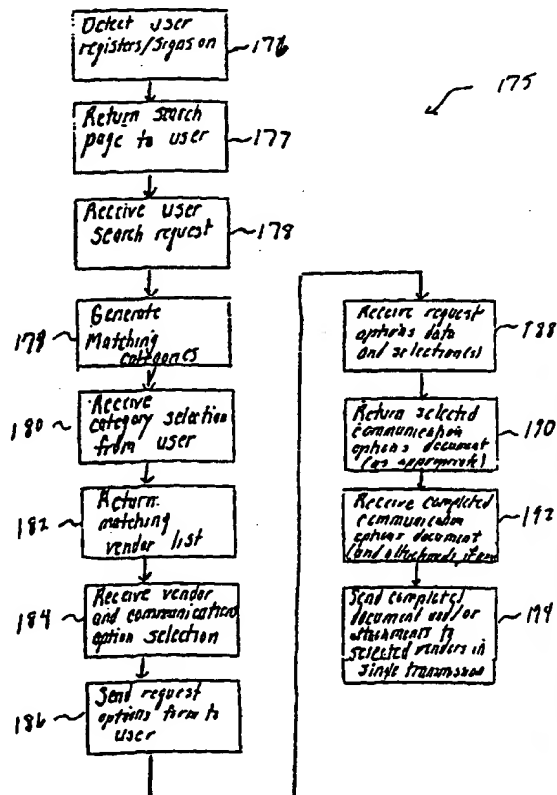 Detect user
registers/signs on
176
175
Return search
page to user
177
Receive user
search request
178
Generate
Matching
categories
179
Receive
category selection
from user
180
Return
matching
vendor list
182
Receive vendor
and communication
option selection
184
Send request
options form to
user
186
Receive request
options data
and selection(s)
188
Return selected
communication
options document
(as appropriate)
190
Receive completed
communication
options document
(and attached item
192
Send completed
document and/or
attachments to
selected vendors in
single transmission
194